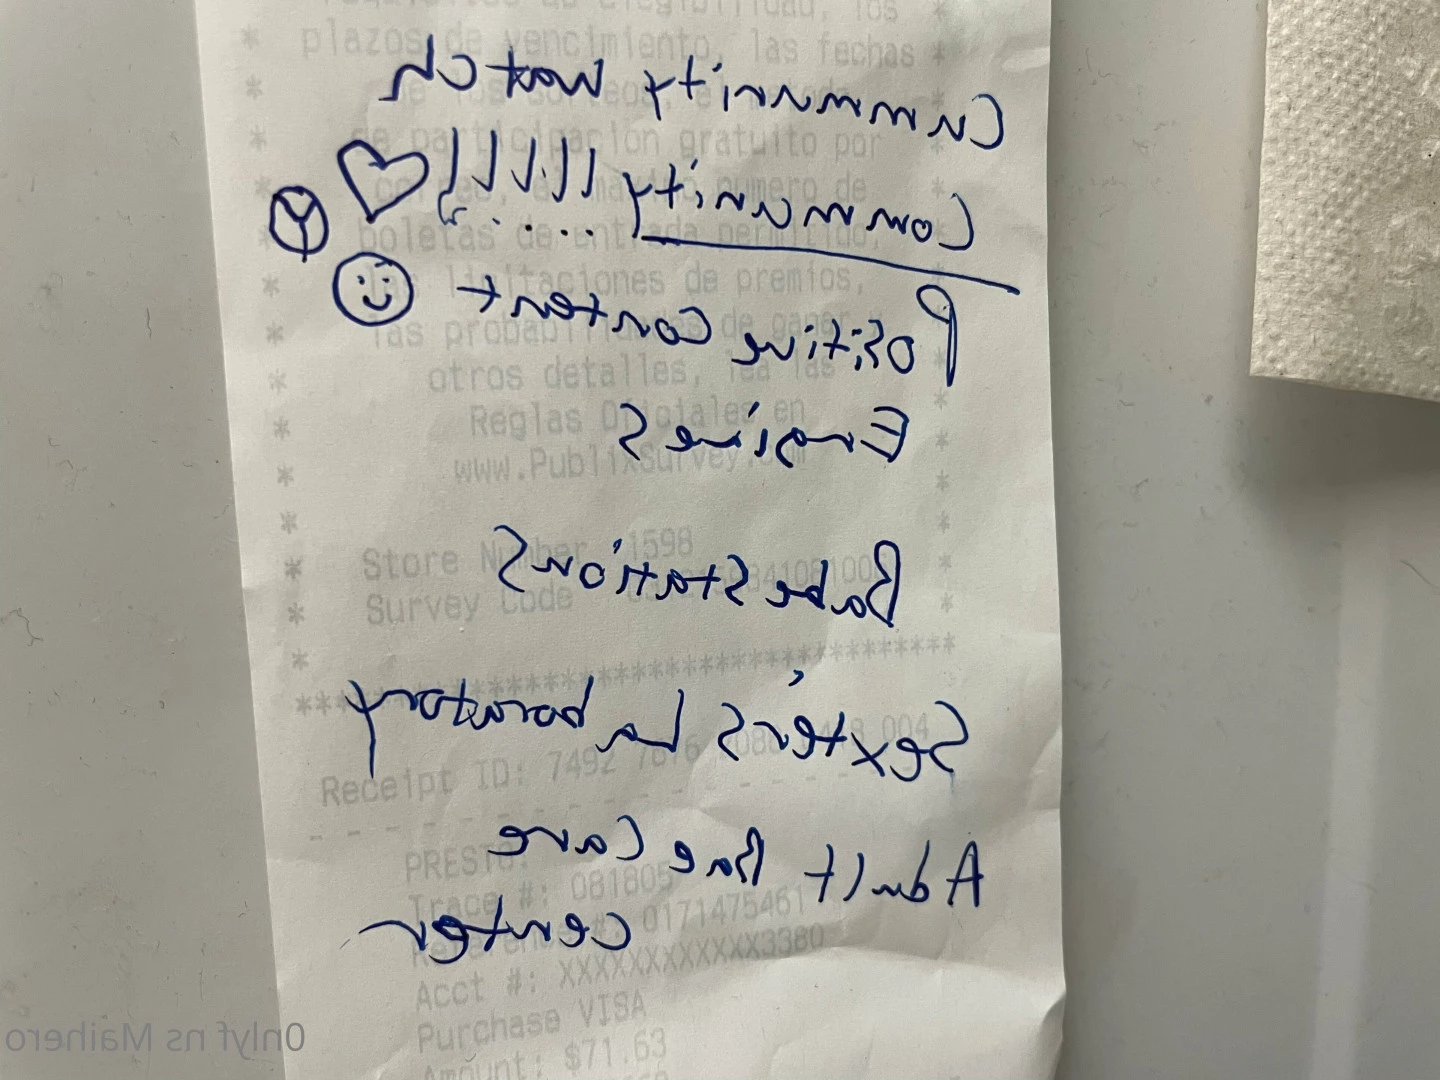 Cummunity watch
Community !!!!!!
Positive content
Engines
Babe Stations
Sexter's Laboratory
Adult Bae Care
center
requisitos de elegibilidad, los
plazos de vencimiento, las fechas
de los sorteos, el
de participación gratuito por
correo, el máximo número de
boletas de entrada permitido,
las limitaciones de premios,
las probabilidades de ganar y
otros detalles, lea las
Reglas Oficiales en
www.PublixSurvey.com
Store Number 1598
Survey Code
Receipt ID: 7492
PRESTO!
Trace #: 081805
Reference #: 0171475461
Acct #: XXXXXXXXXXXX3380
Purchase VISA
Amount: $71.63
Onlyf ns Maihero